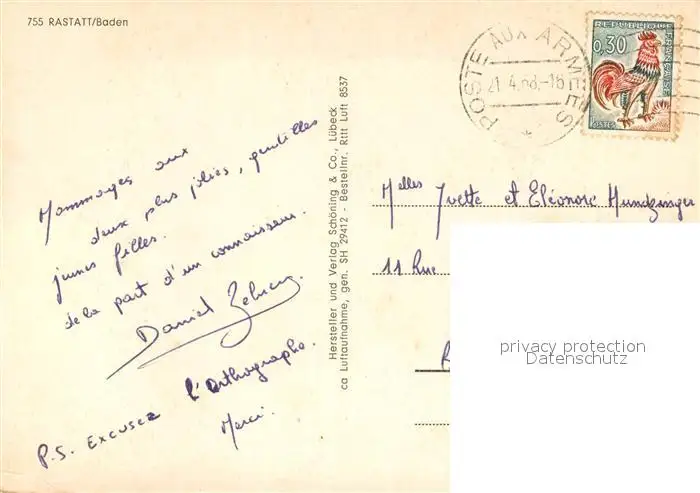 755 RASTATT/Baden
Hommages aux
deux plus jolies, gentilles
jeunes filles.
de la part d'un connaisseur.
Daniel
P.S. Excusez l'Orthographe.
Merci.
Hersteller und Verlag Schöning & Co., Lübeck
ca Luftaufnahme, gen. SH 29412 - Bestellnr. Rttt Luft 8537
POSTE AUX ARMEES
21.4.68.-18
REPUBLIQUE FRANÇAISE
0,30
POSTES
Melles Yvette et Eléonore Mundzinger
11 Rue
privacy protection
Datenschutz